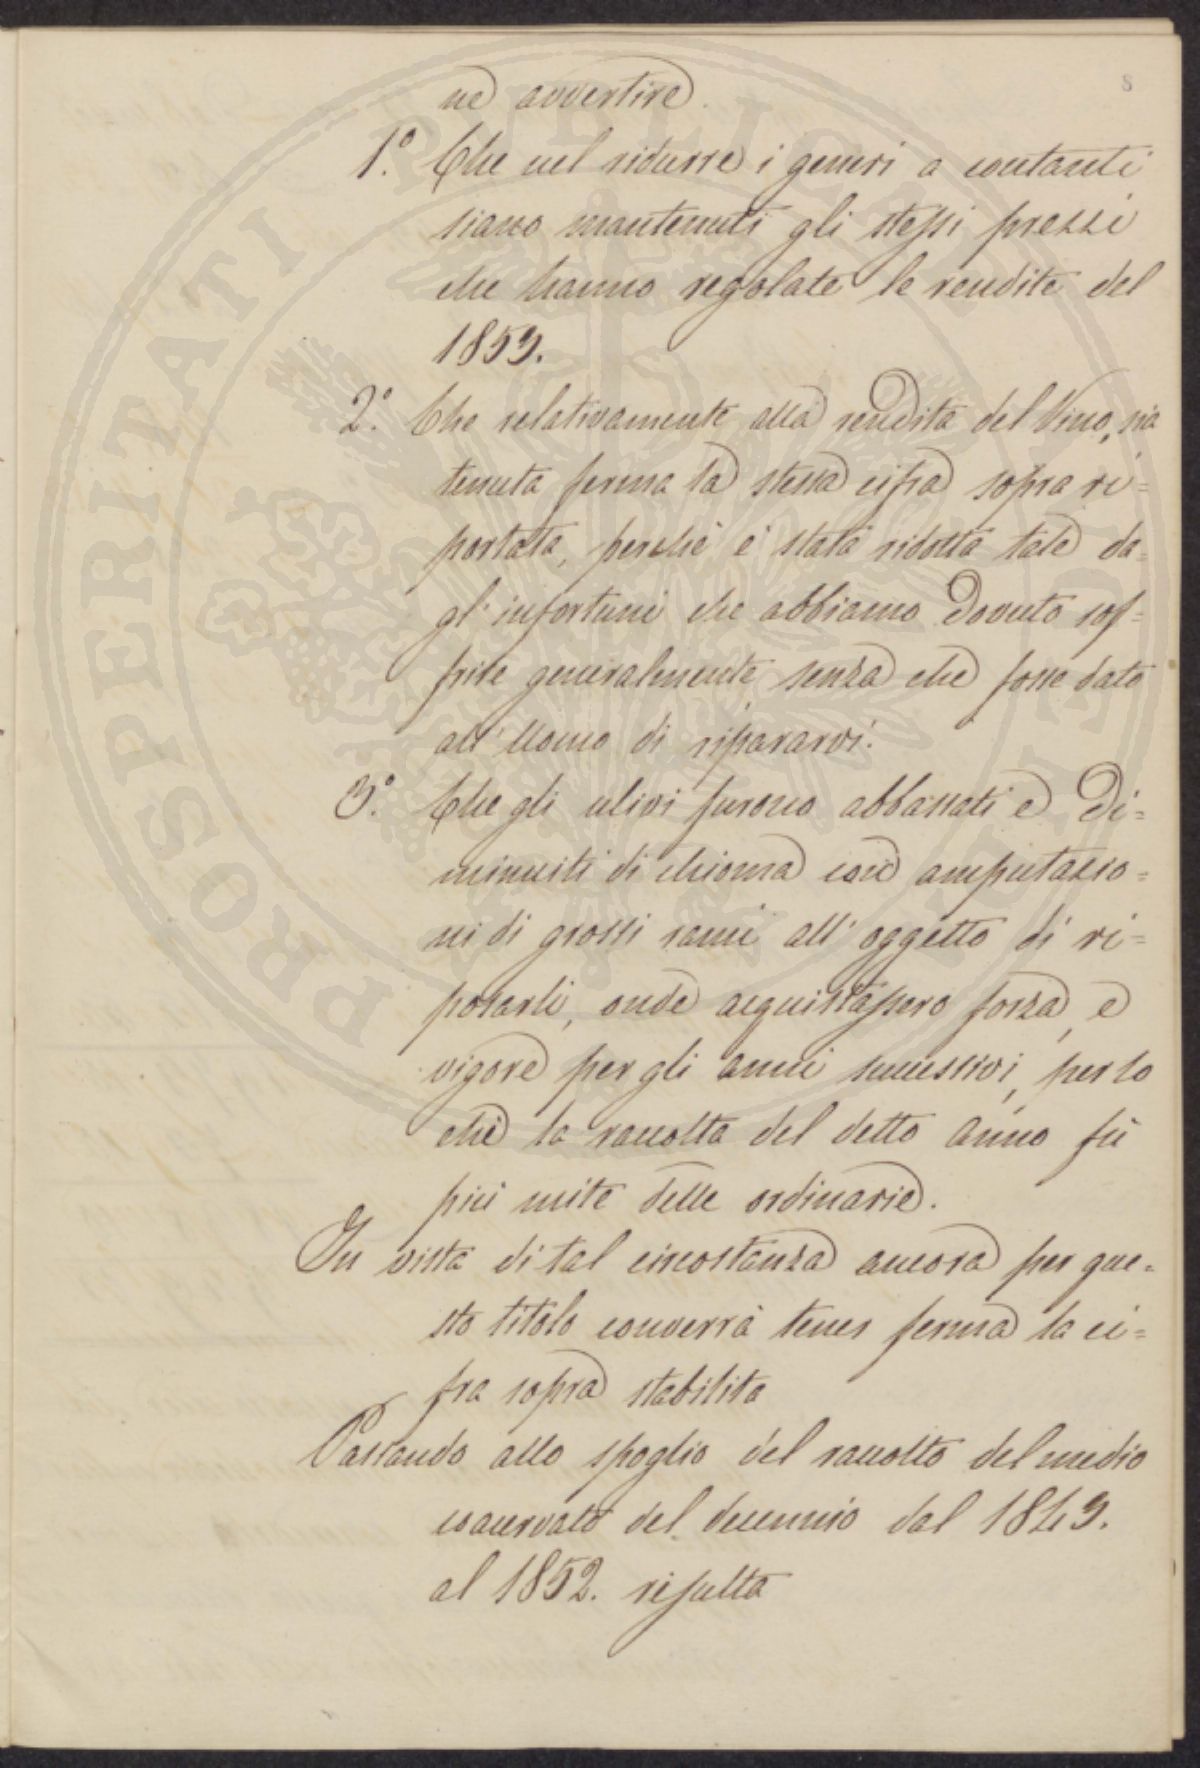 8
ne avvertire.
1.° Che nel ridurre i generi a contanti
siano mantenuti gli stessi prezzi
che hanno regolate le rendite del
1853.
2.° Che relativamente alla rendita del Vino, sia
tenuta ferma la stessa cifra sopra ri=
portata, perchè è stata ridotta tale da=
gl'infortuni che abbiamo dovuto sof=
frire generalmente, senza che fosse dato
all'Uomo di ripararvi.
3.° Che gli ulivi furono abbassati e di=
minuiti di chioma con amputazio=
ni di grossi rami all'oggetto di ri=
posarli, onde acquistassero forza, e
vigore per gli anni successivi, perlo
chè la raccolta del detto anno fù
più mite delle ordinarie.
In vista di tal circostanza ancora per que=
sto titolo converrà tener ferma la ci=
fra sopra stabilita
Passando allo spoglio del raccolto del medio
coacervato del decennio dal 1843.
al 1852. risulta
PROSPERITATI PVBLICAE AVGENDAE